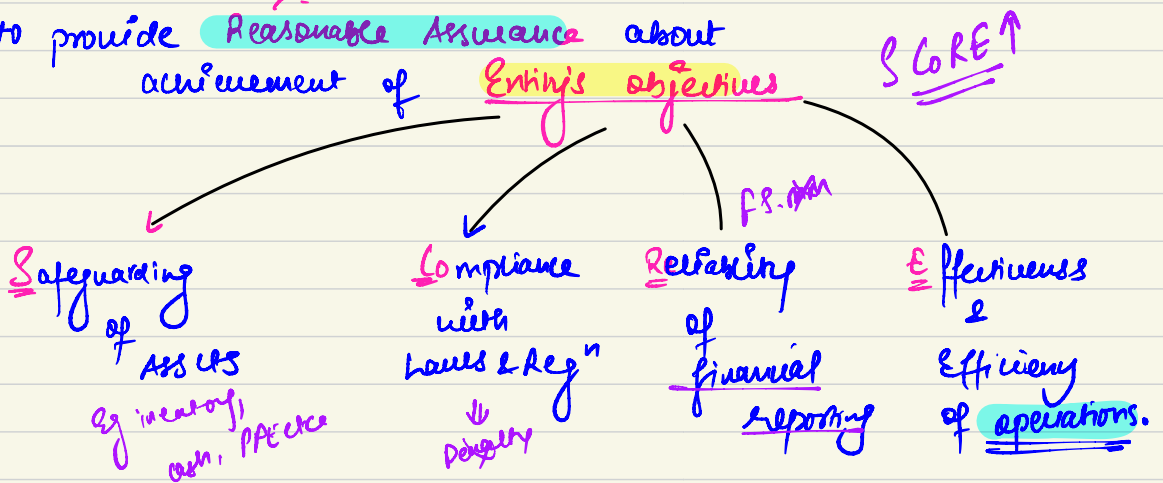 to provide Reasonable Assurance about
achievement of Entity's objectives
SCORE ↑
FS.
Safeguarding
of
Assets
Eg inventory,
cash, PPE etc
Compliance
with
Laws & Regⁿ
⇓
Penalty
Reliability
of
financial
reporting
Effectiveness
&
Efficiency
of operations.